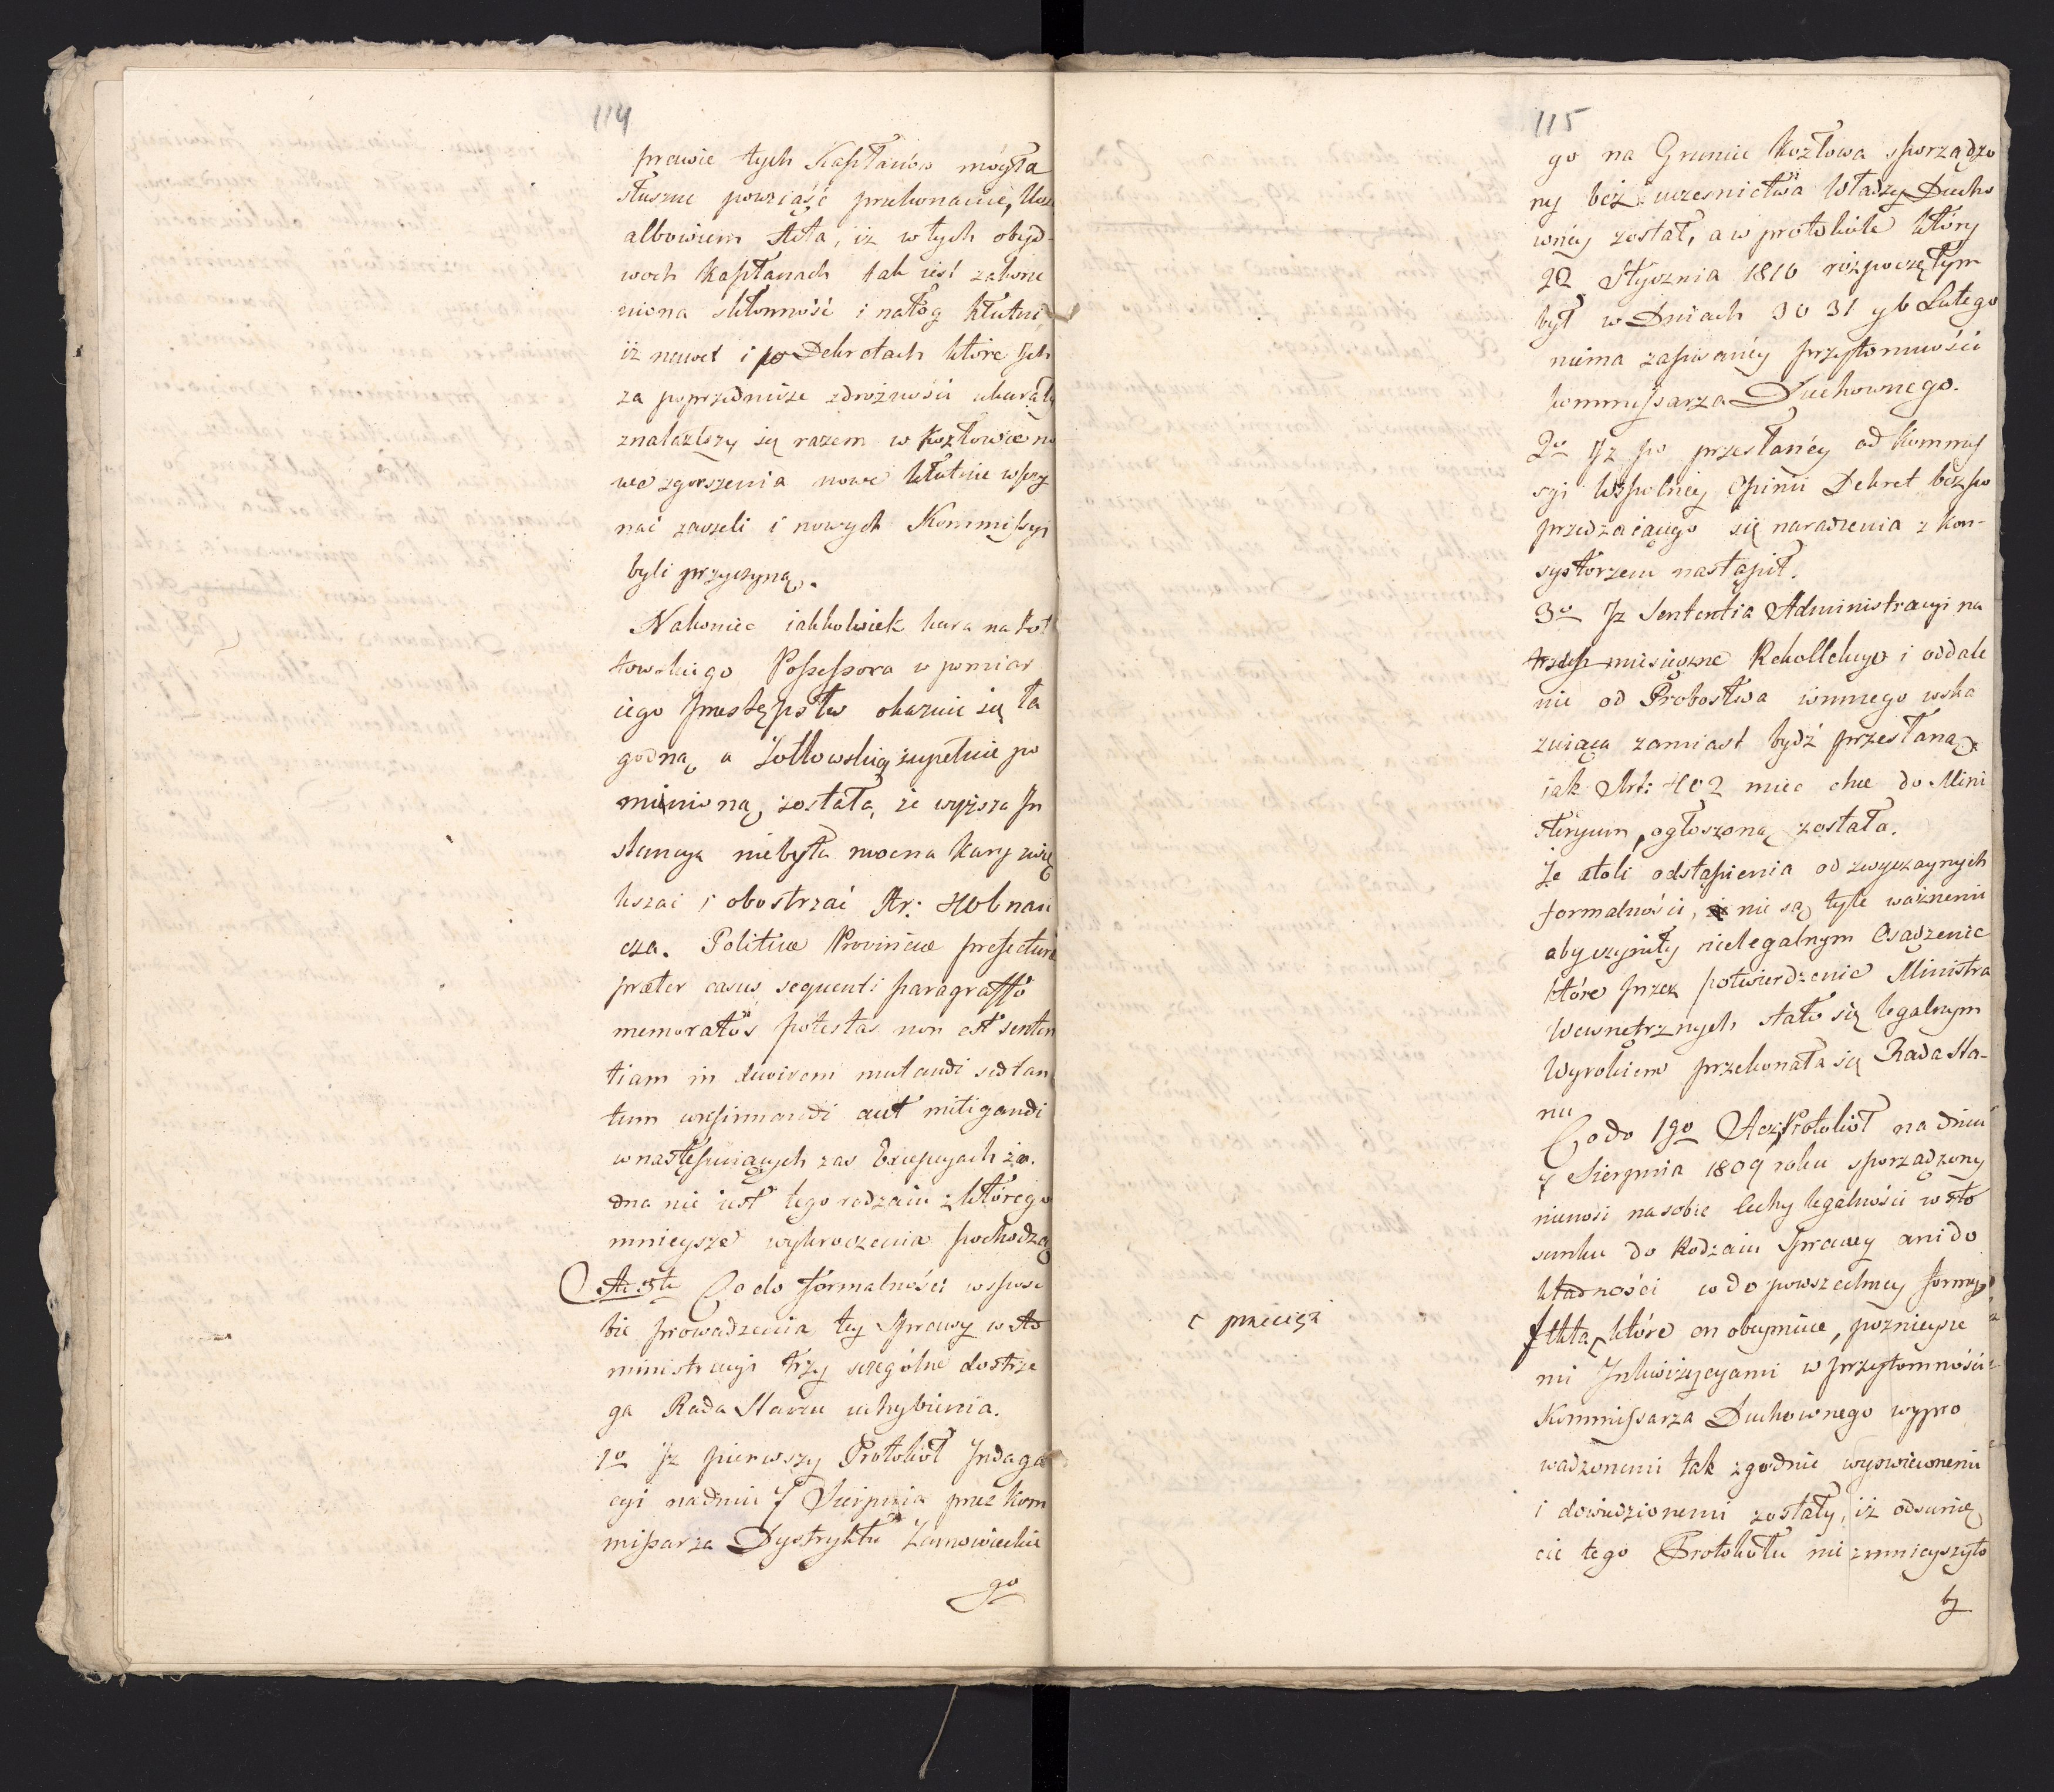 114
prawie tych Kapłanów mogła
słuszne powziąść przekonanie,
albowiem Akta, iż w tych obyd-
woch Kapłanach tak iest zakorze
niona skłonność i nałóg kłutni
iż nawet i po Dekretach które Jch
za poprzednicze zdrożności ukarały
znalazłszy się razem w Kozłowie no
we zgorszenia nowe kłutnie wszczy
nać zaczeli i nowych Kommissyi
byli przyczyną.
Nakoniec iakkolwiek kara na Żoł
towskiego Possessora w pomiar
iego przestępstw okazuie się ła
godną, a Żołtowskią zupełnie po
minioną została, że wyższa Jn
stancya niebyła mocna kary zwię
kszać i obostrzać Ar: 406 nau
cza. Politicae Provinciae prefecturae
praeter casus sequenti paragraffo
memoratos potestas non est senten
tiam in duriorem mutandi sed tan
tum confirmandi aut mitigandi
w następuiących zas Excepcyach ża.
dna nie iest tego rodzaiu z którego
mnieysze wykroczenia pochodzą
Ad 3tu Co do formalności w sposo
bie prowadzenia tey Sprawy w Ad
ministracyi trzy szczególne dostrze
ga Rada Stanu uchybienia.
1o Jż pierwszy Protokół Jndaga
cyi na dniu 7 Sierpnia przez Kom
missarza Dystryktu Zarnowieckie
go
115
go na Gruncie Kozłowa sporządzo
ny bez uczesnictwa Władzy Ducho
wnéy został, a w protokóle który
22 Stycznia 1810 rozpoczętym
był w Dniach 30 31 y 6 Lutego
niema zapisanéy przytomności
kommissarza Duchownego.
2o Jż po przesłanéy od Kommis
syi Wspolney Opinii Dekret bez po
przedzaiącego się naradzenia z Kon-
systorzem nastąpił.
3o Jż Sententia Administracyi na
trzech miesięczne Rekollekcye i oddale
nie od Probostwa winnego wska
zuiąca zamiast bydź przesłaną
iak Art: 402 miec chce do Mini
steryum, ogłoszoną została.
Że atoli odstąpienia od zwyczaynych
formalności, nie są tyle ważnemi
aby czyniły nielegalnym Osądzenie
które przez potwierdzenie Ministra
Wewnętrznych stało się legalnym
Wyrokiem przekonała się Rada Sta-
nu
Co do 1go Acz Protokół na dniu
7 Sierpnia 1809 roku sporządzony
nienosi na sobie Cechy legalności w sto
sunku do Rodzaiu Sprawy ani do
kładności co do powszechney formy
fakta które on obeymuie, poznieysze
mi Jnkwizycyami w przytomności
Kommissarza Duchownego wypro
wadzonemi tak zgodnie wyswieconemi
i dowiedzionemi zostały, iż odsunię
cie tego Protokołu nie zmnieyszyło
by
przecięż